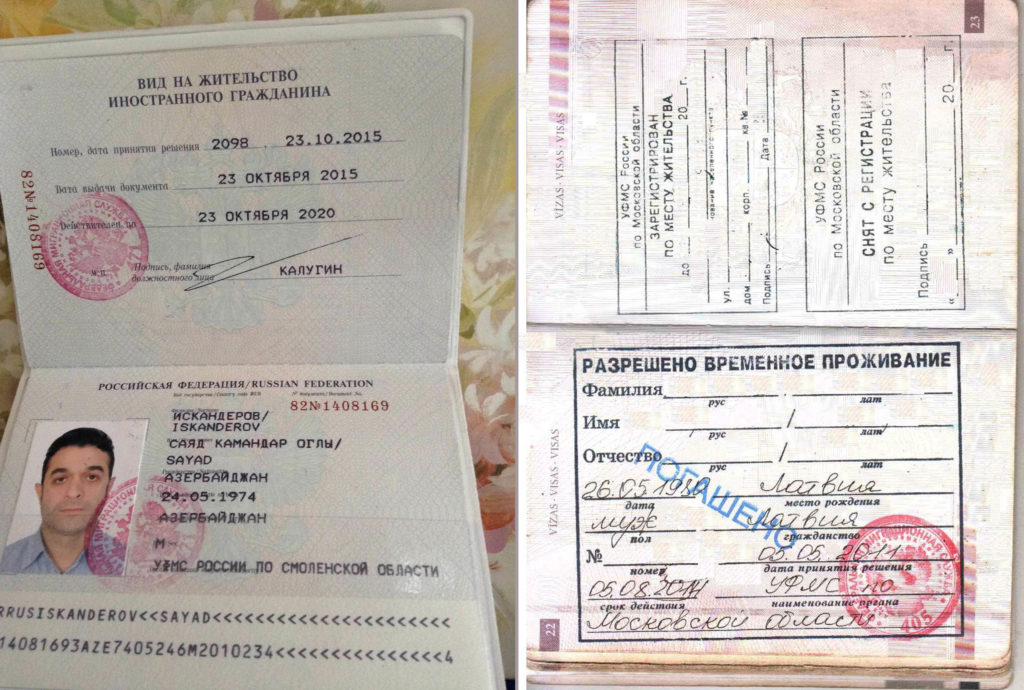 ВИД НА ЖИТЕЛЬСТВО
ИНОСТРАННОГО ГРАЖДАНИНА
Номер, дата принятия решения 2098 . 23.10.2015
Дата выдачи документа 23 ОКТЯБРЯ 2015
Действителен по 23 ОКТЯБРЯ 2020
м.п. Подпись, фамилия должностного лица КАЛУГИН
82№1408169
РОССИЙСКАЯ ФЕДЕРАЦИЯ/RUSSIAN FEDERATION
82№1408169
ИСКАНДЕРОВ/
ISKANDEROV
САЯД КАМАНДАР ОГЛЫ/
SAYAD
АЗЕРБАЙДЖАН
24.05.1974
АЗЕРБАЙДЖАН
М
УФМС РОССИИ ПО СМОЛЕНСКОЙ ОБЛАСТИ
RRUSISKANDEROV<<SAYAD<<<<<<<<<<<<<<<<<<<<<<
14081693AZE7405246M2010234<<<<<<<<<<<<<<<<4
23
VIZAS·VISAS·VISAS
УФМС России
по Московской области
ЗАРЕГИСТРИРОВАН
ПО МЕСТУ ЖИТЕЛЬСТВА
до 20 г.
ул.
дом корп. кв.№
Подпись Дата
УФМС России
по Московской области
СНЯТ С РЕГИСТРАЦИИ
по месту жительства
Подпись
« » 20 г.
VIZAS·VISAS·VISAS
22
РАЗРЕШЕНО ВРЕМЕННОЕ ПРОЖИВАНИЕ
Фамилия
рус лат
Имя /
рус лат
Отчество /
рус лат
ПОГАШЕНО
26.05.198 Латвия
дата место рождения
муж Латвия
пол гражданство
№ 05.05.2011
номер дата принятия решения
05.08.2014 УФМС по
срок действия наименование органа
Московской области
405